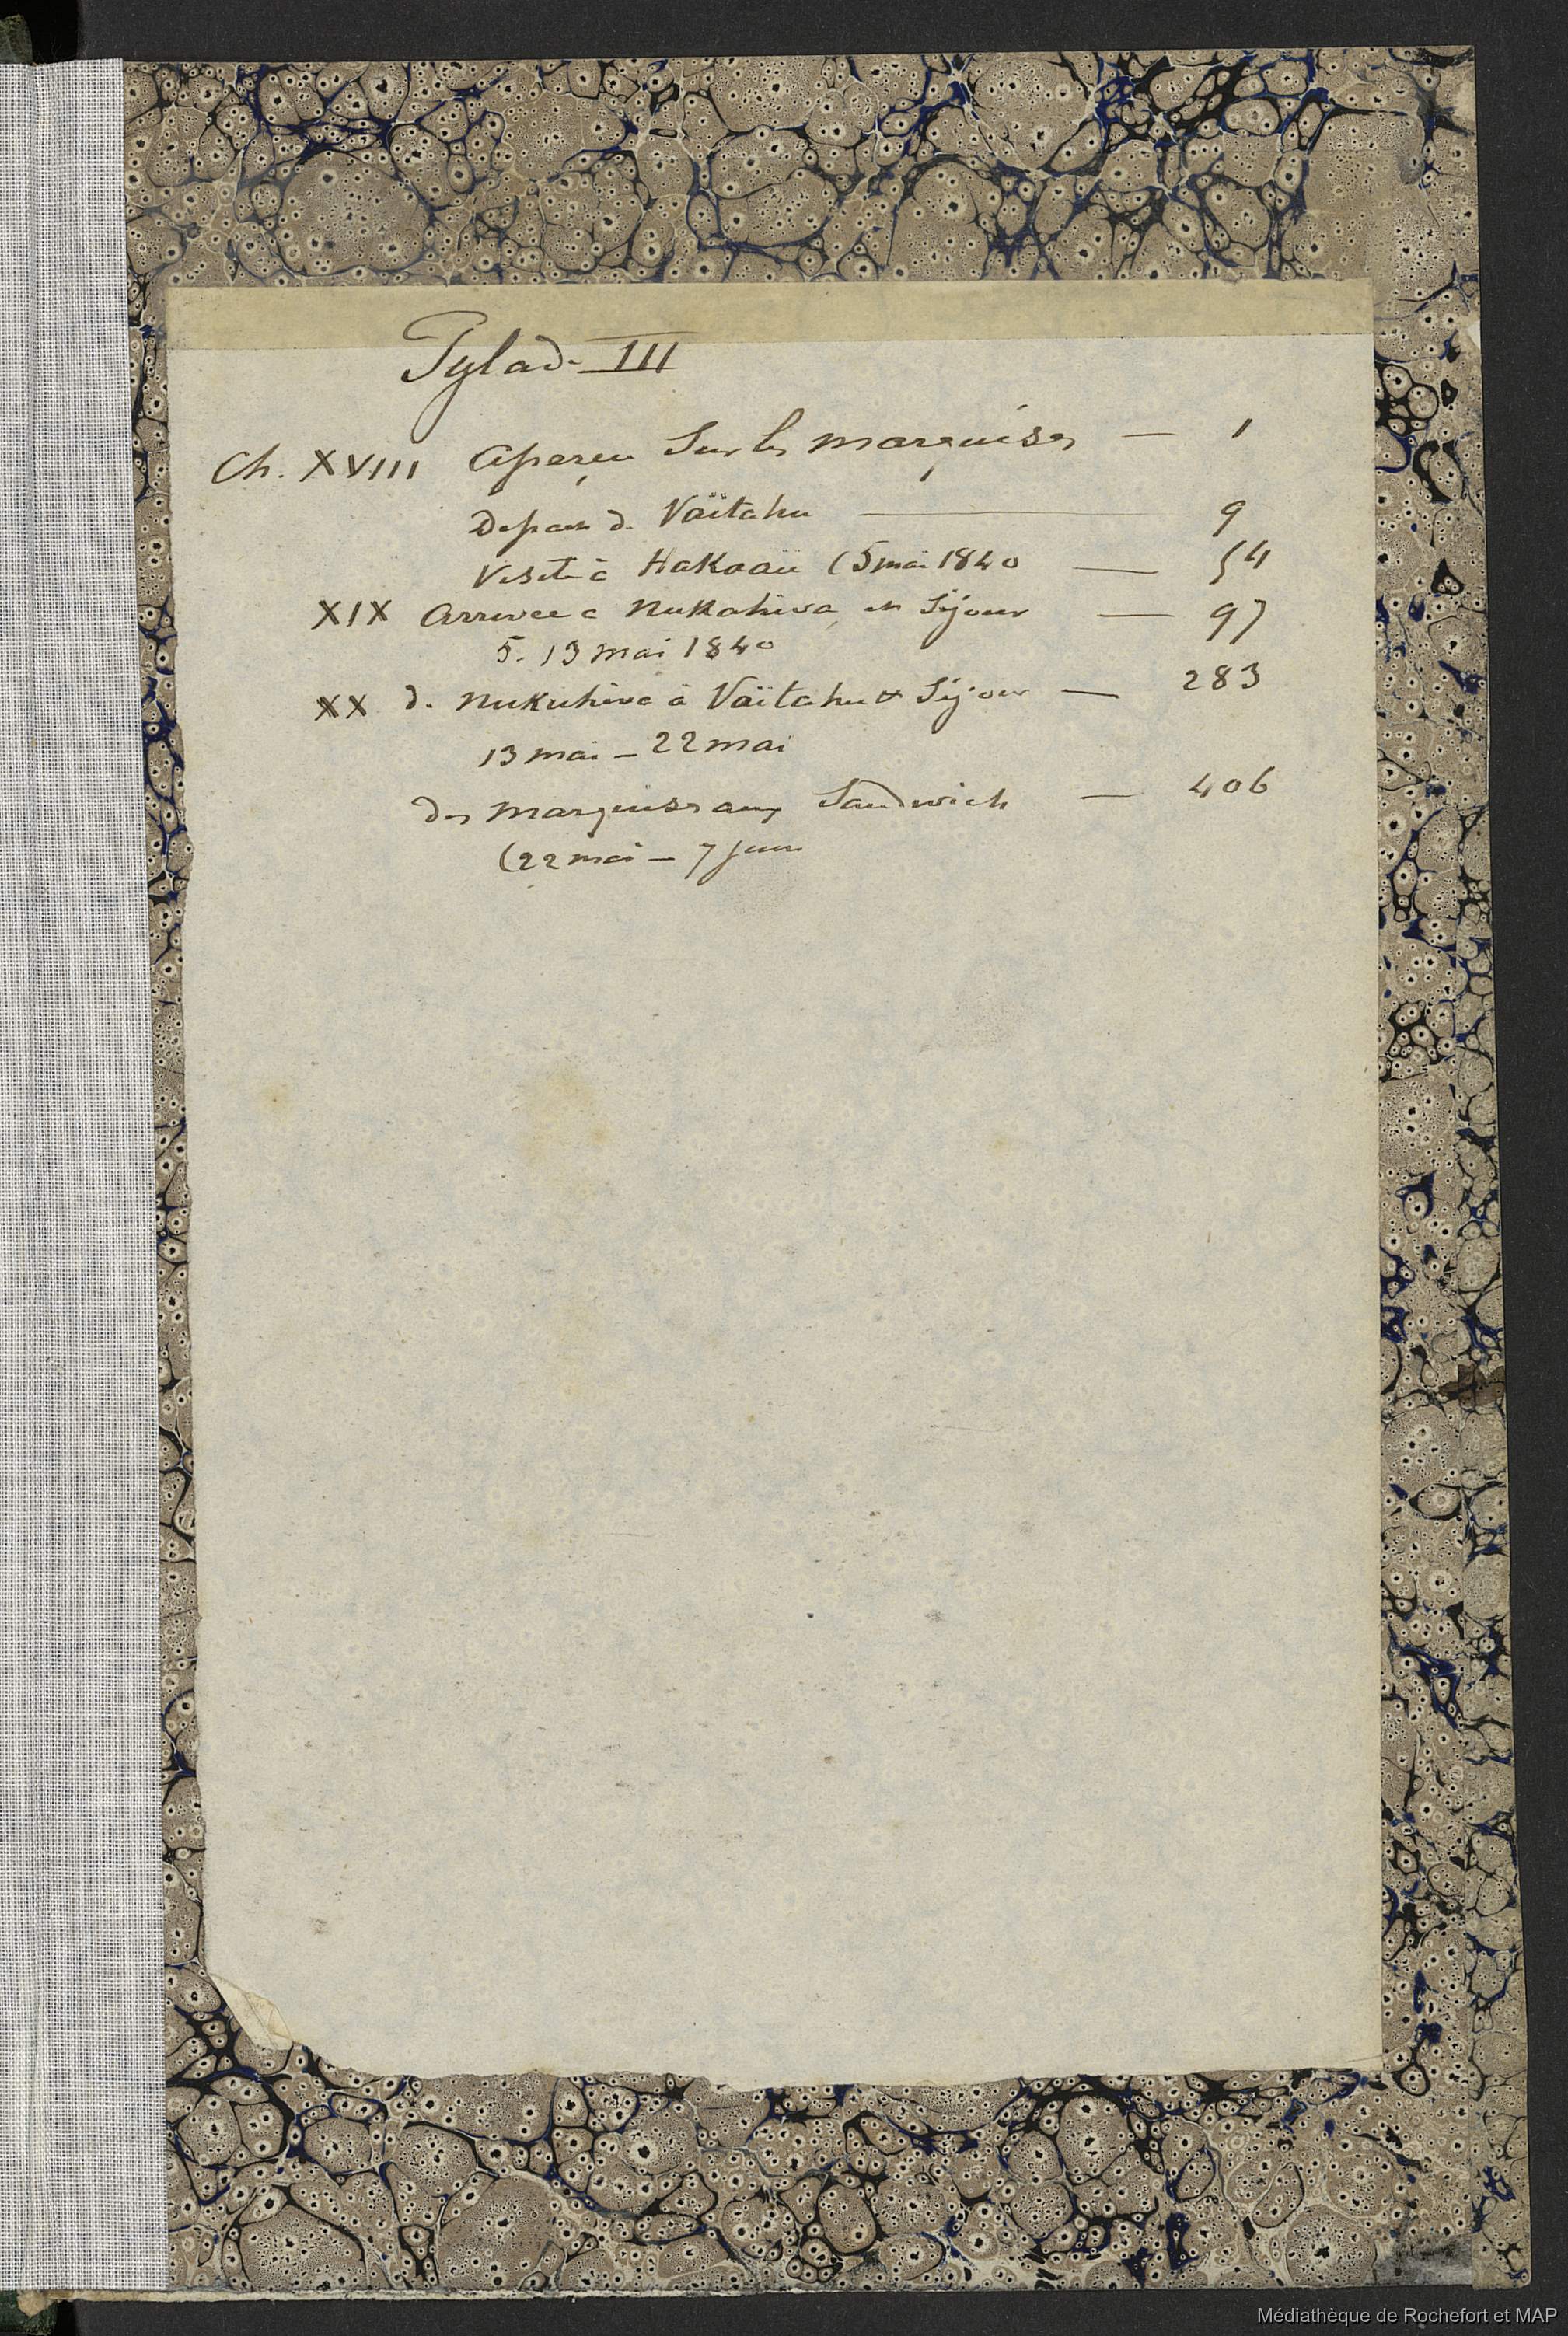 Pylade III
Ch. XVIII aperçu Sur les marquises — 1
Depart de Vaïtahu — 9
Visite à Hakaaü (5 mai 1840 — 54
XIX arrivée à Nukahiva, et Séjour — 97
5. 13 mai 1840
XX de Nukuhiva à Vaïtahu & Séjour — 283
13 mai — 22 mai
des marquises aux Sandwich — 406
(22 mai — 7 juin
Médiathèque de Rochefort et MAP